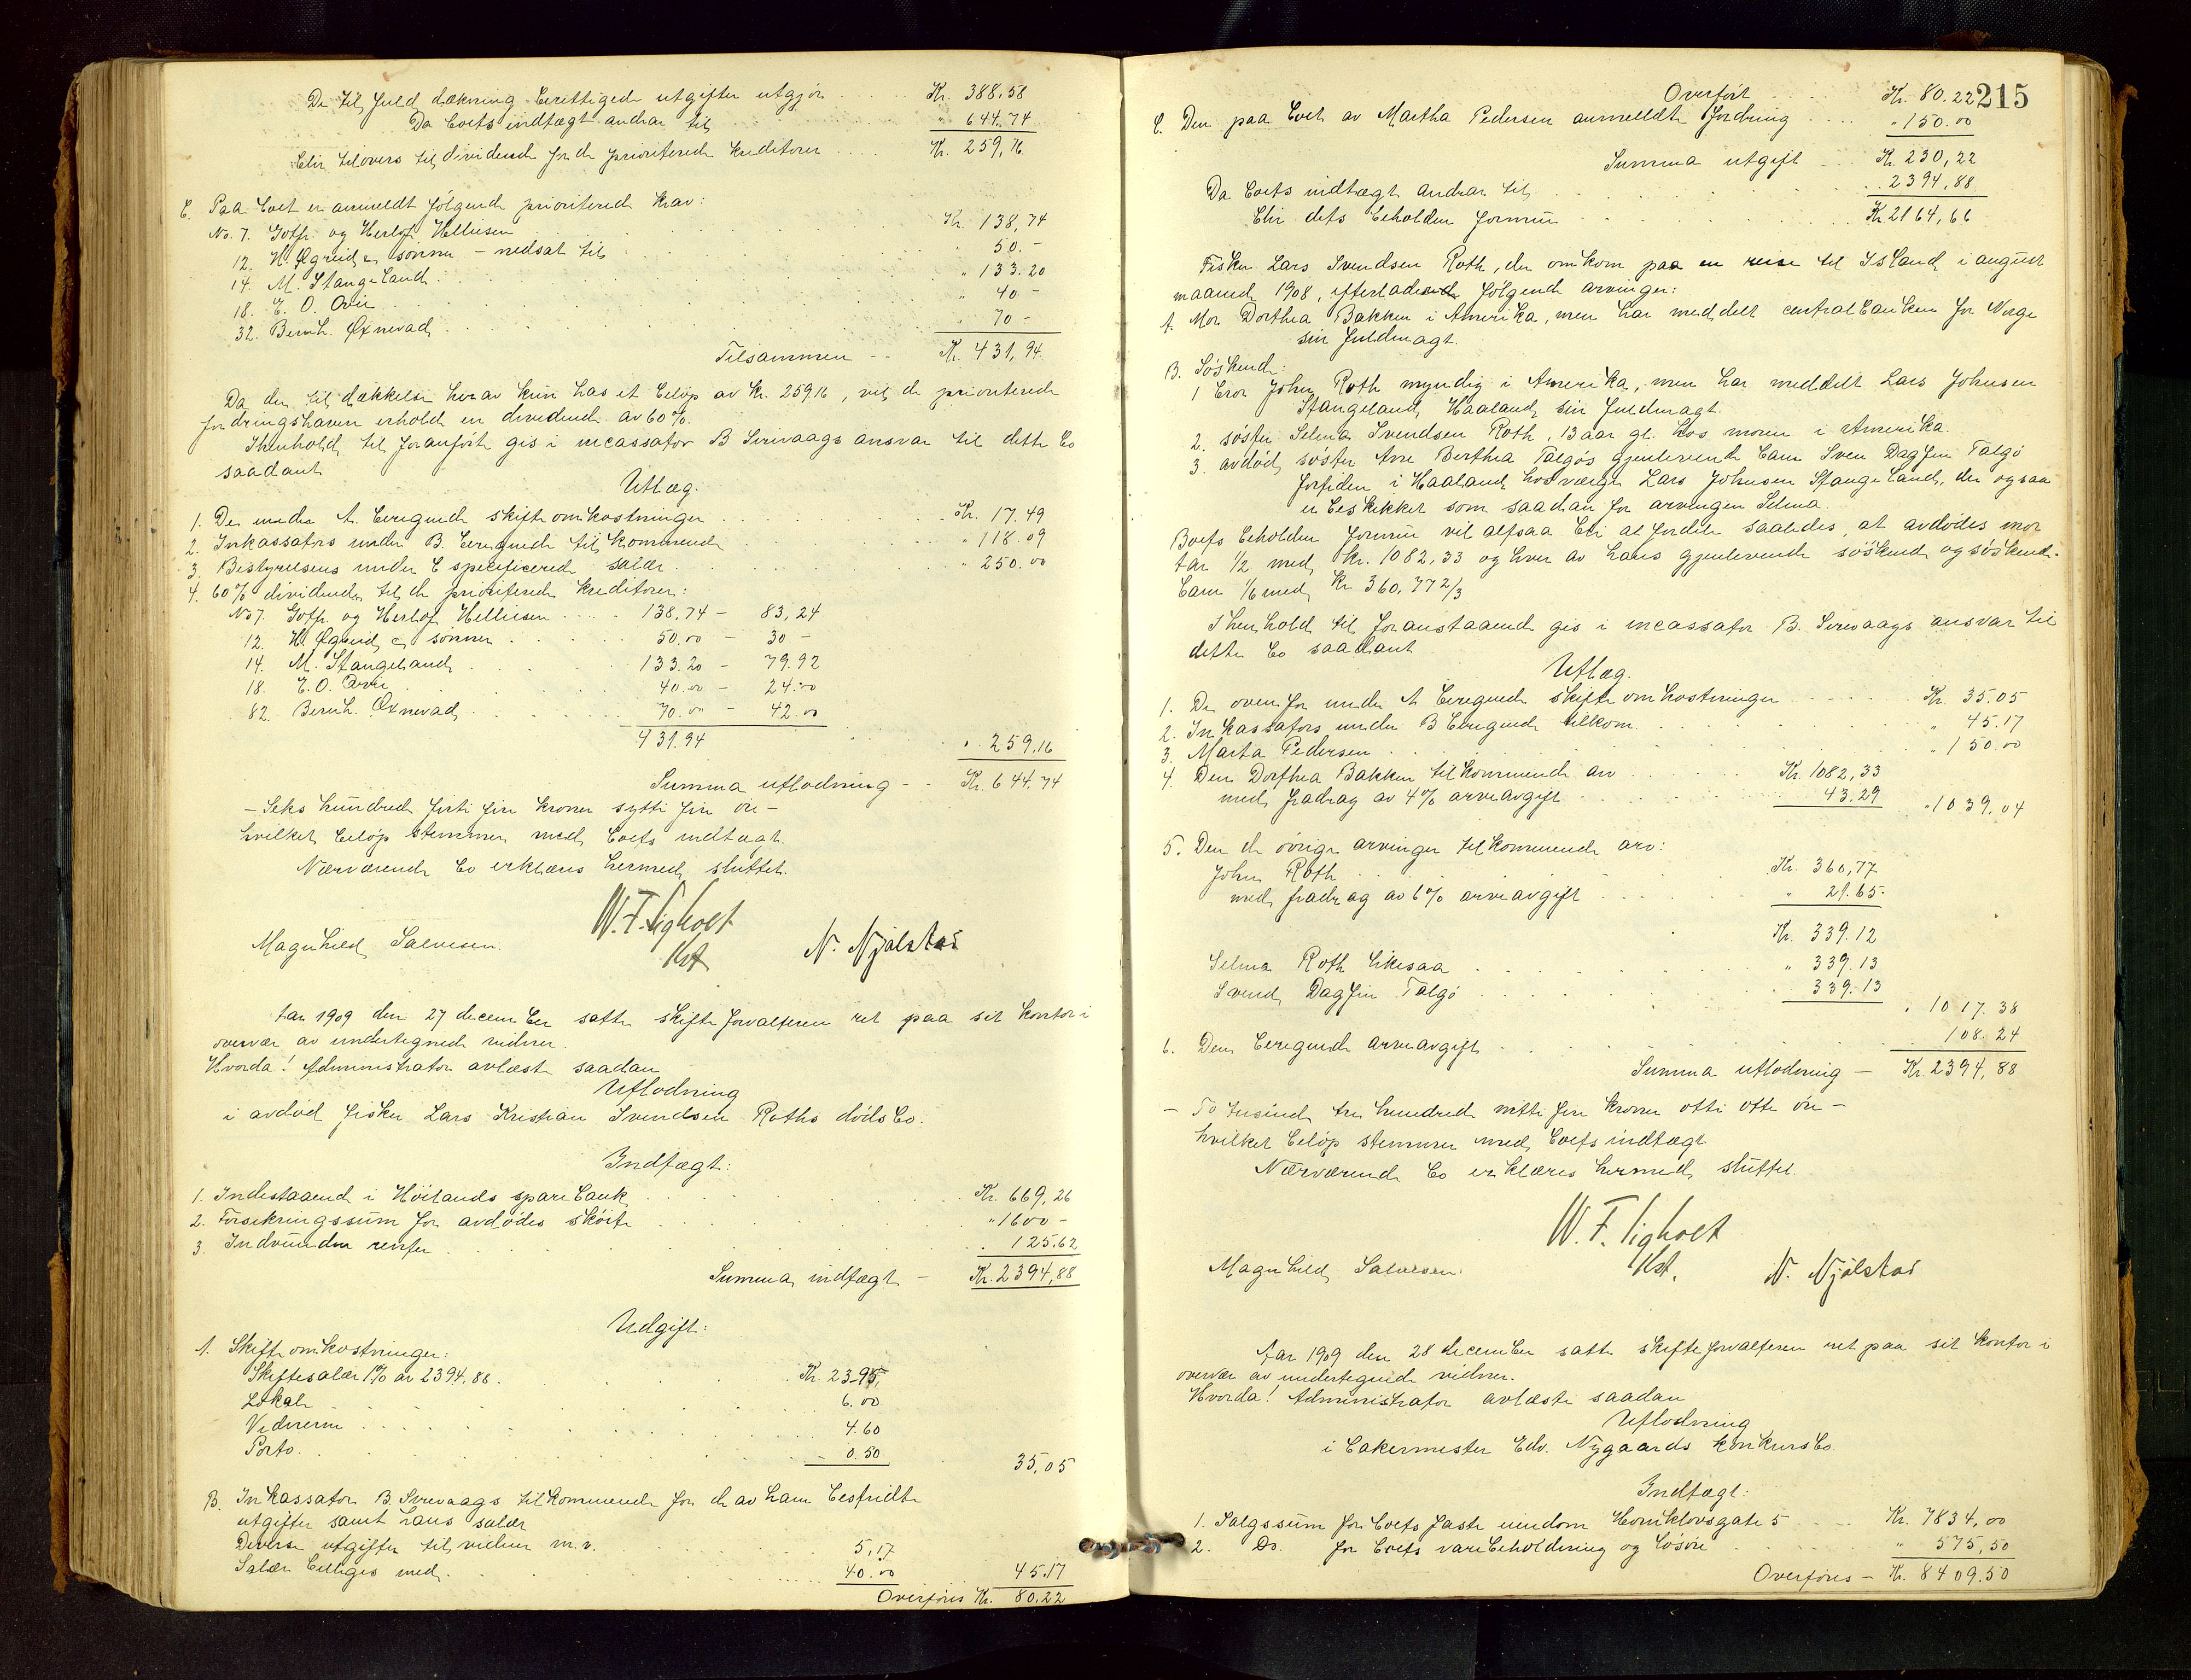 De til fuld dækning berettigede utgifter utgjør Kr. 388,58
Da boets indtægt andrar til " 644.74
blir tilovers til dividende for de prioriterede kreditorer Kr. 259,16
C. Paa boet er anmeldt følgende prioriterede krav:
No. 7. Gotfr. og Herlof Helliesen Kr. 138,74
12. H. Øgreid & sønner - nedsat til " 50.-
14. M. Stangeland " 133.20
18. E. O. Orre " 40 -
32. Bernh. Øxnevad " 70 -
Tilsammen -- Kr. 431,94
Da der til dækkelse herav kun has et beløp av kr. 259.16, vil de prioriterede
fordringshavere erholde en dividende av 60%.
I henhold til foranførte gis i incassator B Sirevaags ansvar til dette bo
saadant
Utlæg.
1. De under A. beregnede skifteomkostninger Kr. 17.49
2. Inkassators under B. beregnede tilkommende " 118.09
3. Bestyrelsens under C specificerede salær " 250.00
4. 60% dividende til de prioriterede kreditorer:
No 7. Gotfr. og Herlof Helliesen 138,74 - 83,24
12. H. Øgreid & sønner 50.00 - 30 -
14. M. Stangeland 133.20 - 79.92
18. E. O. Orre 40.00 - 24.00
82. Bernh. Øxnevad 70.00 - 42.00
431.94 " 259,16
Summa utlodning - Kr. 644.74
- Seks hundrede firti fire kroner sytti fire øre -
hvilket beløp stemmer med boets indtægt.
Nærværende bo erklæres hermed sluttet.
W. F. Sigholt
Kst
Magnhild Salvesen. N. Njølstad
Aar 1909 den 27 december satte skifteforvalteren ret paa sit kontor i
overvær av undertegnede vidner.
Hvorda! Administrator avlæste saadan
Utlodning
i avdød fisker Lars Kristian Svendsen Roths dødsbo.
Indtægt:
1. Indestaaende i Høilands sparebank Kr. 669,26
2. Forsikringssum for avdødes skøite " 1600 -
3. Indvundne renter " 125.62
Summa indtægt - Kr. 2394,88
Udgift:
A. Skifteomkostninger:
Skiftesalær 1% av 2394,88. Kr. 23.95
Lokale 6.00
Vidnerne 4.60
Porto. 0.50 35,05
B. Inkassator B. Sirevaags tilkommende for de av ham bestridte
utgifter samt hans salær
Diverse utgifter til vidner m.v. 5,17
Salær billiges med 40.00 45.17
Overføres Kr. 80.22
215
Overført Kr. 80.22
C. Den paa boet av Martha Pedersen anmelldte fordring " 150.00
Summa utgift Kr. 230,22
Da boets indtægt andrar til 2394,88
blir dets beholdne formue Kr. 2164,66
Fisker Lars Svendsen Roth, der omkom paa en reise til Island i august
maaned 1908, efterladende følgende arvinger:
A. Mor Dorthea Bakken i Amerika, men har meddelt centralbanken for Norge
sin fuldmagt.
B. Søskende:
1 bror John Roth myndig i Amerika, men har meddelt Lars Johnsen
Stangeland Haaland sin fuldmagt.
2. søster Selma Svendsen Roth, 13 aar gl. hos moren i Amerika.
3. avdød søster Ane Berthea Talgøs gjenlevende barn Sven Dagfin Talgø
fortiden i Haaland hos værge Lars Johnsen Stangeland, der ogsaa
er beskikket som saadan for arvingen Selma.
Boets beholdne formue vil altsaa bli at fordele saaledes, at avdødes mor
tar 1/2 med kr. 1082,33 og hver av hans gjenlevende søskende og søskende-
barn 1/6 med Kr 360,77 2/3
I henhold til foranstaaende gis i incassator B. Sirevaags ansvar til
dette bo saadant
Utlæg.
1. De ovenfor under A beregnede skifteomkostninger Kr. 35.05
2. Inkassators under B beregnede tilkom. " 45.17
3. Marta Pedersen " 150.00
4. Den Dorthea Bakken tilkommende arv Kr. 1082,33
med fradrag av 4% arveavgift 43.29 " 1039,04
5. Den de øvrige arvinger tilkommende arv:
John Roth Kr. 360,77
med fradrag av 6% arveavgift " 21.65.
Kr. 339.12
Selma Roth likesaa " 339.13
Svend Dagfin Talgø 339.13
" 1017.38
6. Den beregnede arveavgift 108.24
Summa utlodning - Kr. 2394,88
- To tusinde tre hundrede nitti fire kroner otti otte øre -
hvilket beløp stemmer med boets indtægt
Nærværende bo erklæres hermed sluttet.
W. F. Sigholt
Kst.
Magnhild Salvesen. N. Njølstad
Aar 1909 den 28 december satte skifteforvalteren ret paa sit kontor i
overvær av undertegnede vidner.
Hvorda! Administrator avlæste saadan
Utlodning
i bakermester Edv. Nygaards konkursbo
Indtægt:
1. Salgssum for boets faste eiendom Hornklovsgate 5 Kr. 7834,00
2. Do. for boets varebeholdning og løsøre " 575,50
Overføres - Kr. 8409.50